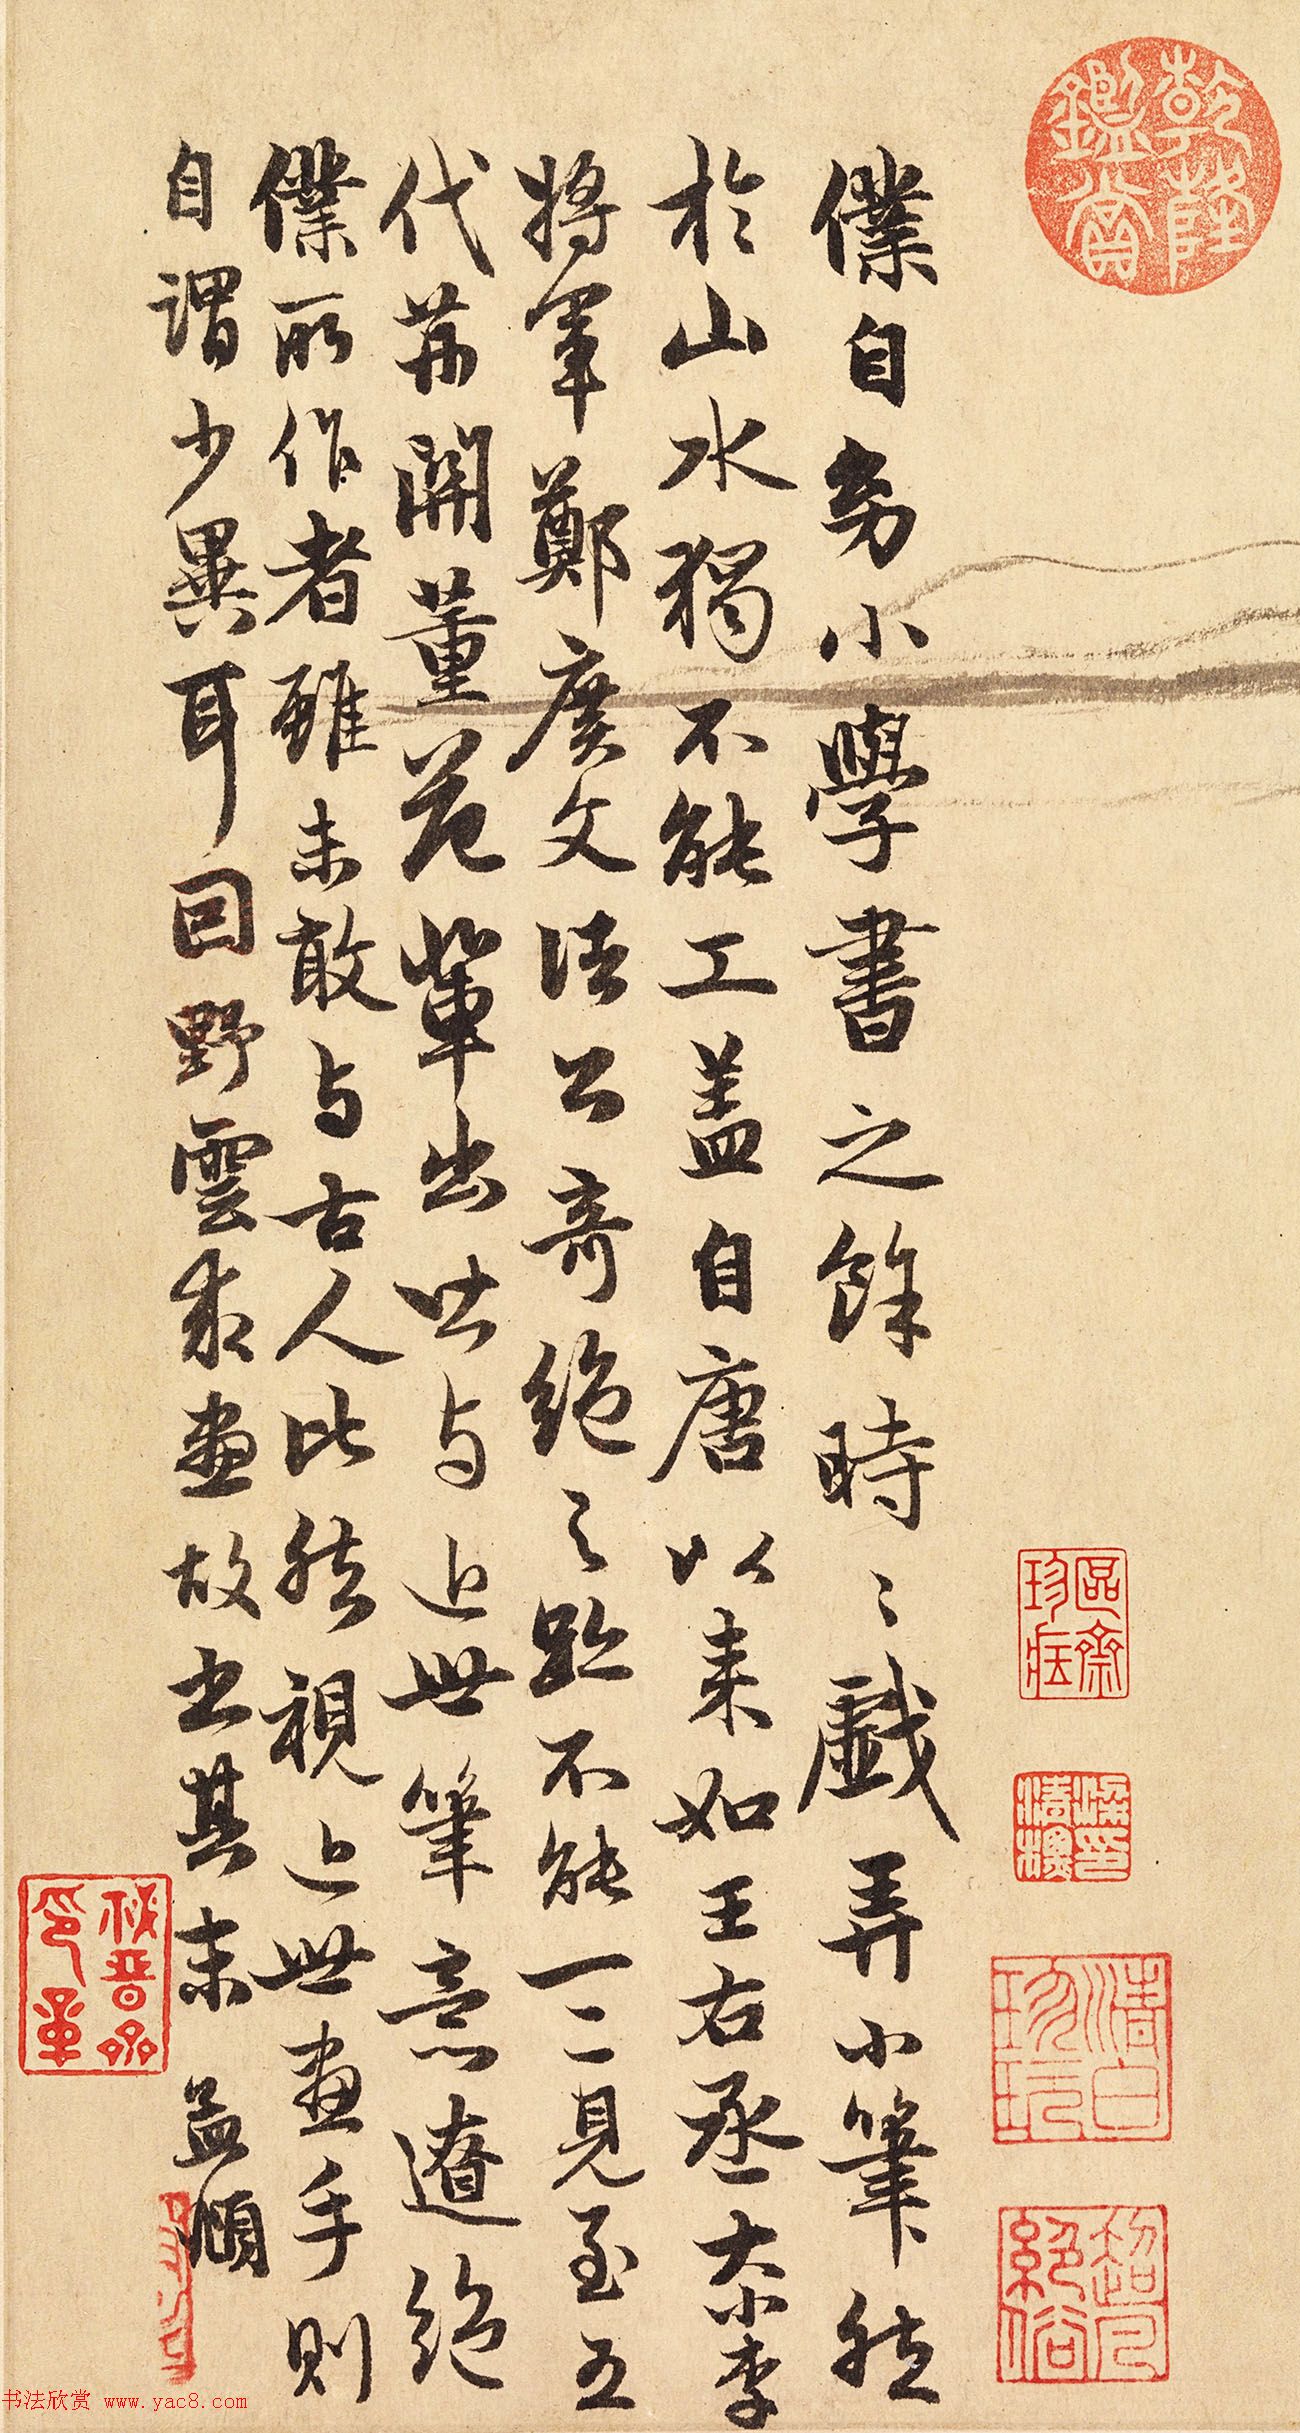 乾隆
鑑賞
僕自幼小學書之餘時〻戲弄小筆然
於山水獨不能工蓋自唐以來如王右丞大小李
將軍鄭廣文諸公奇絕之跡不能一二見至五
代荊關董范輩出皆与近世筆意遼絕
僕所作者雖未敢与古人比然視近世畫手則
自謂少異耳因野雲求畫故书其末 孟頫
珍玩
超凡
絕俗
书法欣赏 www.yac8.com